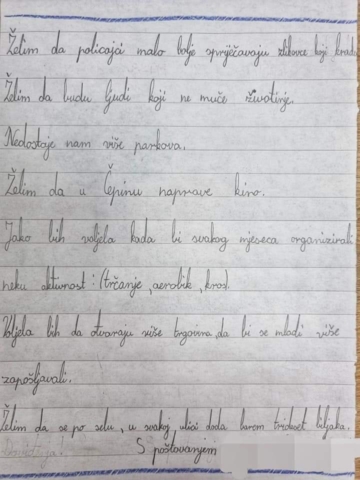 Želim da policajci malo bolje spriječavaju zlikovce koji kradu
Želim da budu ljudi koji ne muče životinje.
Nedostaje nam više parkova.
Želim da u Čepinu naprave kino.
Jako bih voljela kada bi svakog mjeseca organizirali
neku aktivnost: (trčanje, aerobik, kros).
Voljela bih da otvaraju više trgovina, da bi se mladi više
zapošljavali.
Želim da se po selu, u svakoj ulici doda barem trideset biljaka.
S poštovanjem